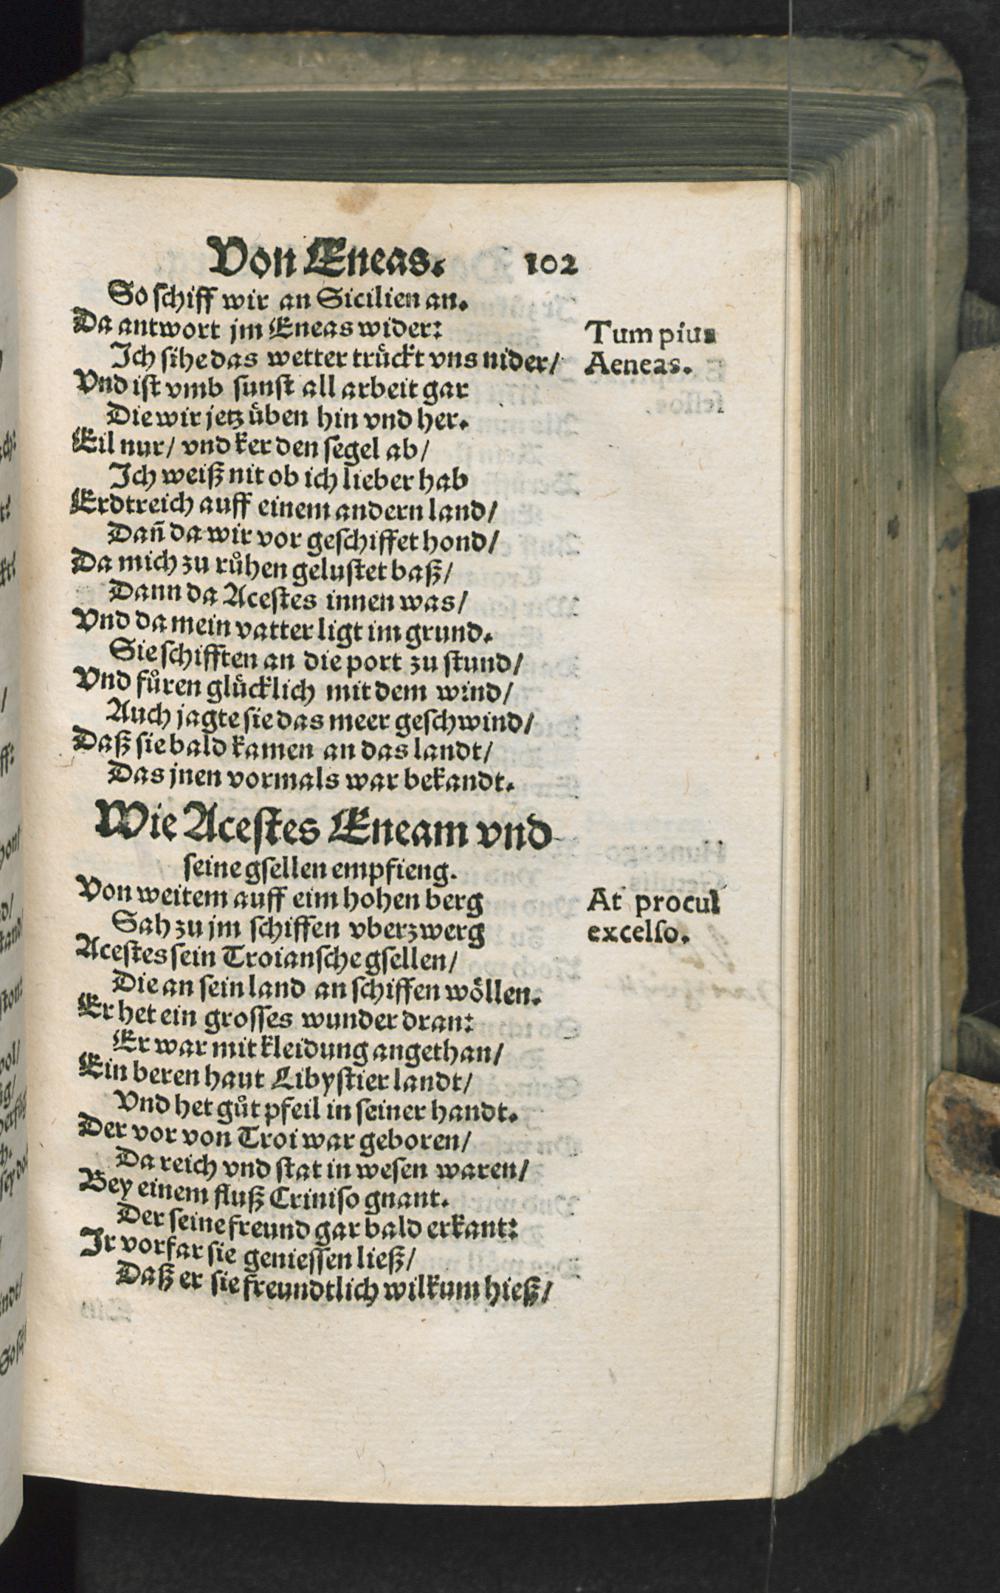 Von Eneas. 102
So schiff wir an Sicilien an.
Da antwort jm Eneas wider:
Tum pius
Ich sihe das wetter trückt vns nider/
Aeneas.
Vnd ist vmb sunst all arbeit gar
Die wir jetz üben hin vnd her.
Eil nur/ vnd ker den segel ab/
Ich weiß nit ob ich lieber hab
Erdtreich auff einem andern land/
Dañ da wir vor geschiffet hond/
Da mich zu růhen gelustet baß/
Dann da Acestes innen was/
Vnd da mein vatter ligt im grund.
Sie schifften an die port zu stund/
Vnd fůren glücklich mit dem wind/
Auch jagte sie das meer geschwind/
Daß sie bald kamen an das landt/
Das jnen vormals war bekandt.
Wie Acestes Eneam vnd
seine gsellen empfieng.
Von weitem auff eim hohen berg
At procul
Sah zu jm schiffen vberzwerg
excelso.
Acestes sein Troiansche gsellen/
Die an sein land an schiffen wöllen.
Er het ein grosses wunder dran:
Er war mit kleidung angethan/
Ein beren haut Libystier landt/
Vnd het gůt pfeil in seiner handt.
Der vor von Troi war geboren/
Da reich vnd stat in wesen waren/
Bey einem fluß Criniso gnant.
Der seine freund gar bald erkant:
Jr vorfar sie geniessen ließ/
Daß er sie freundtlich wilkum hieß/